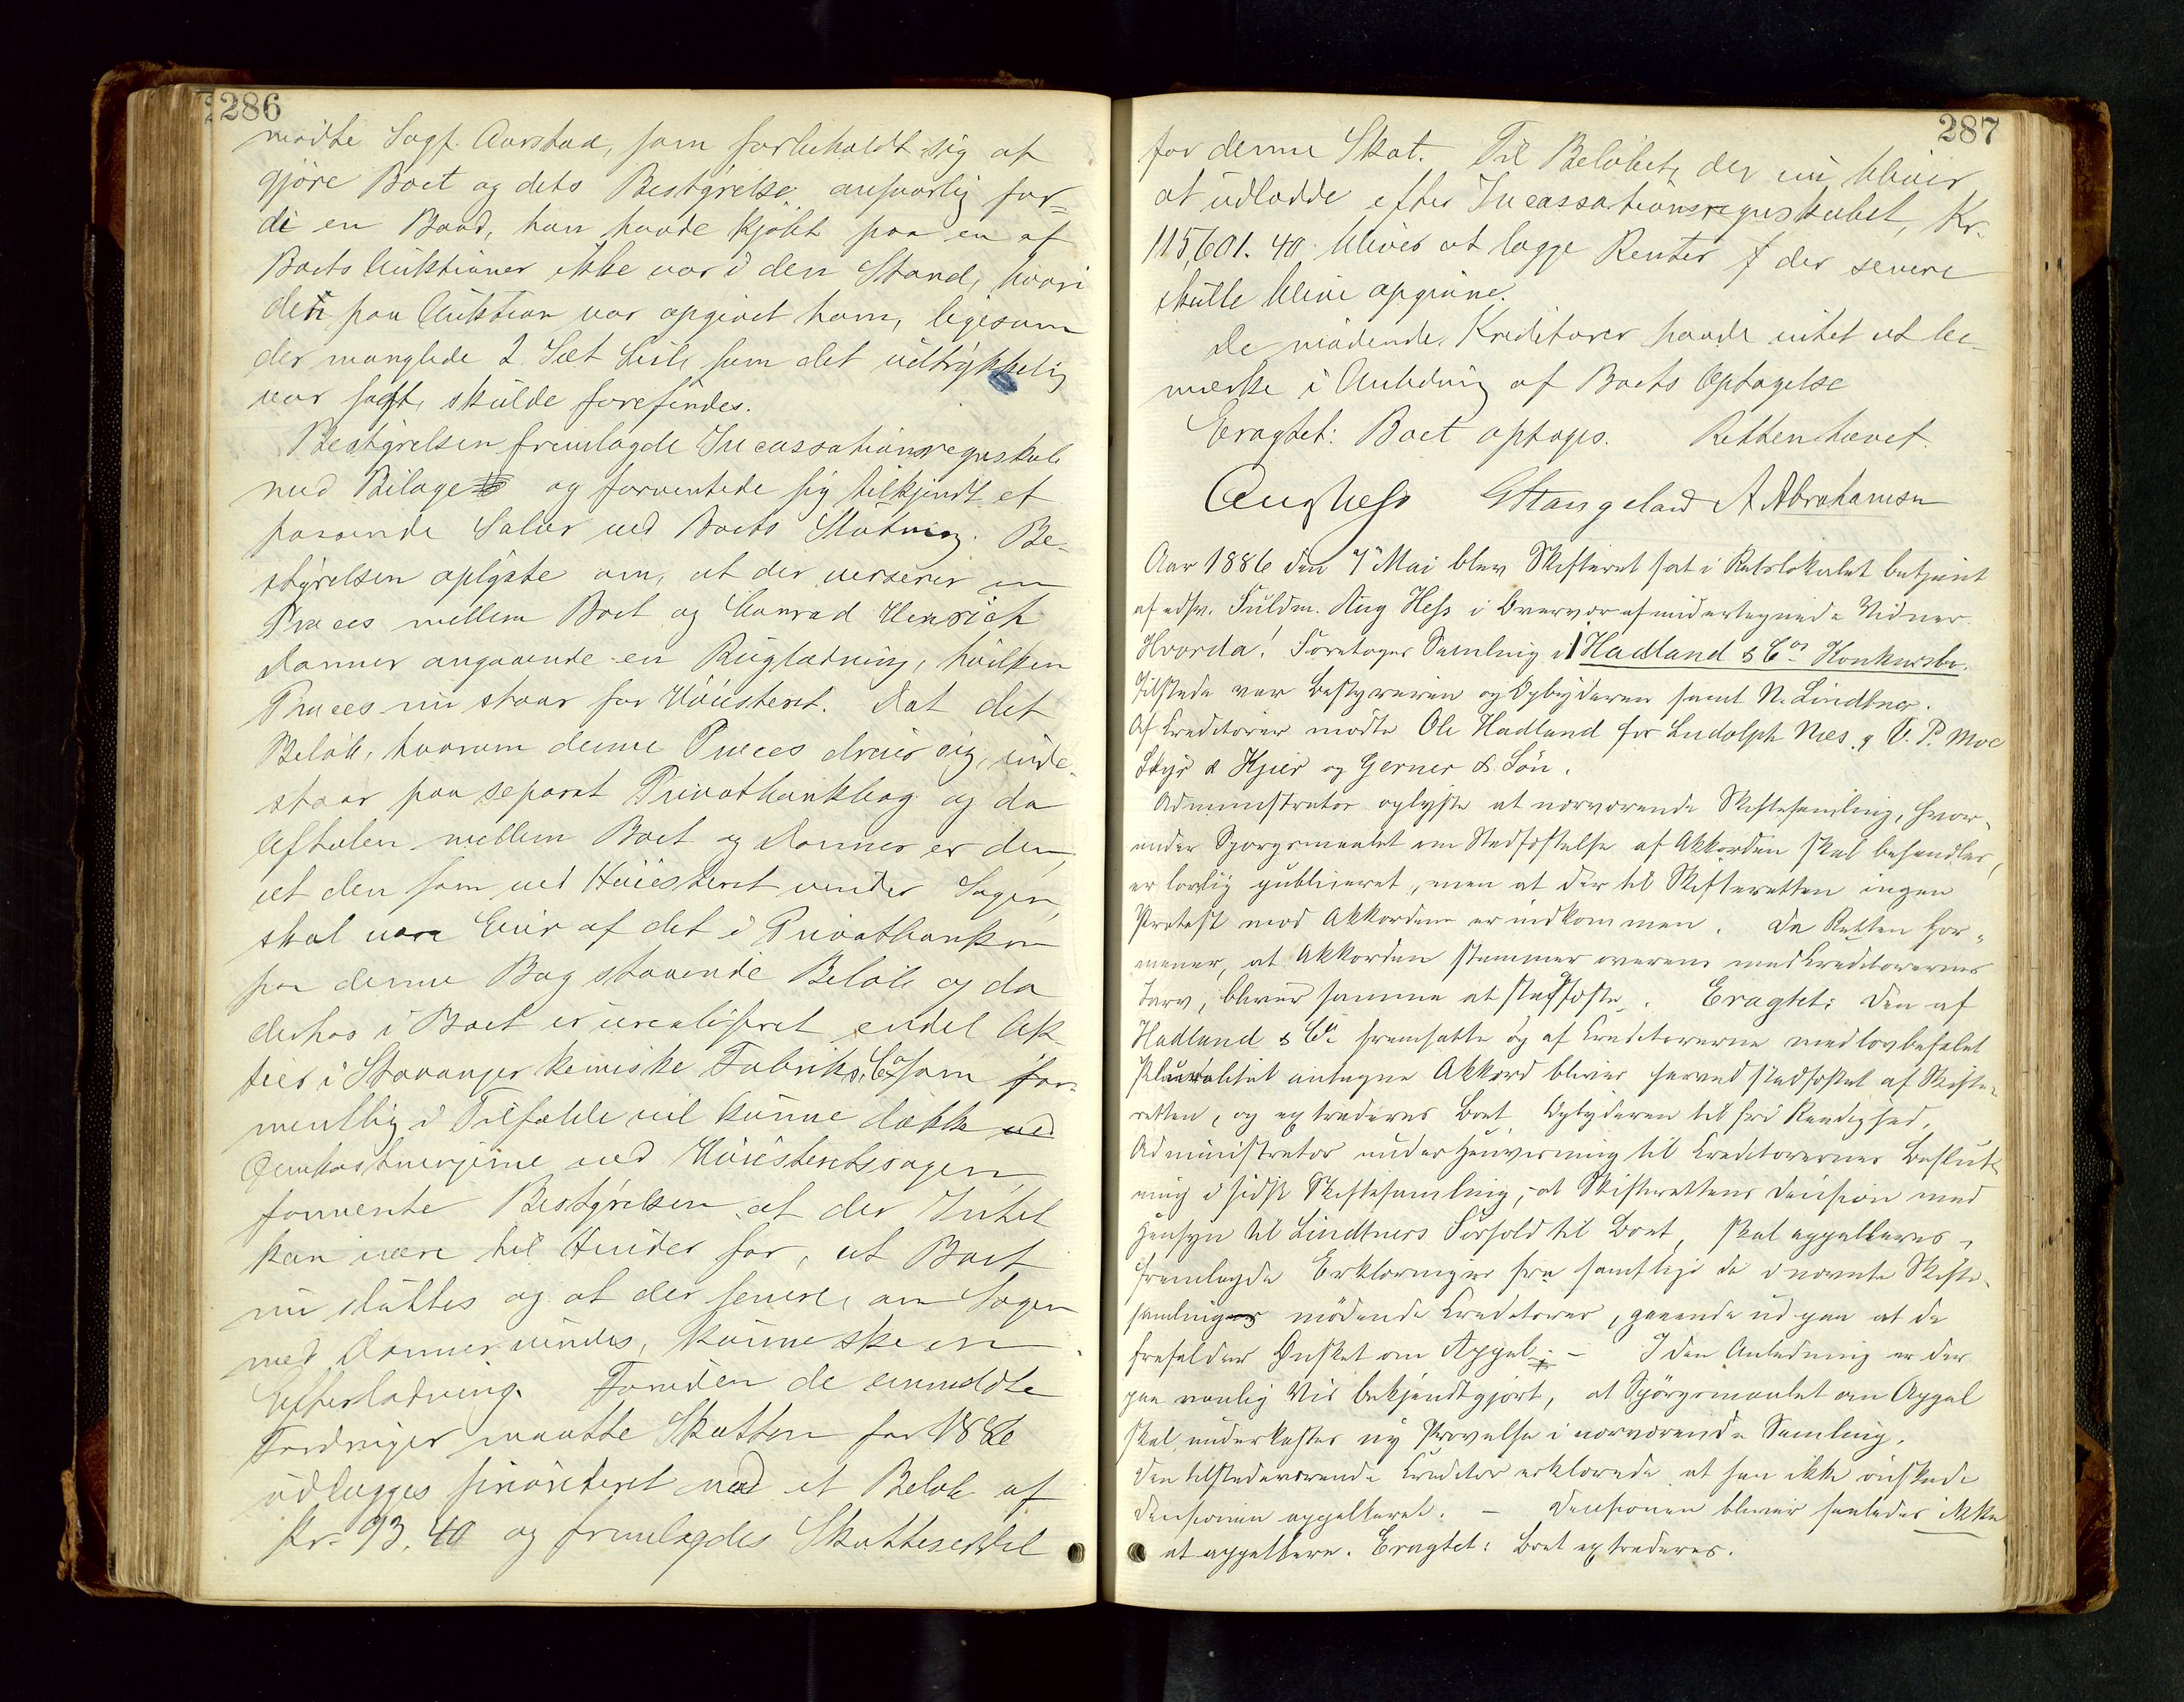 286
mödte Sagf. Aarstad, som forbeholdt sig at
gjöre Boet og dets Bestyrelse ansvarlig for-
di en Baad, han havde kjöbt paa en af
Boets Auktioner ikke var i den Stand, hvori
den paa Auktion var opgivet ham, ligesom
der manglede 2 Sæt Seil, som det udtrykkelig
var sagt, skulde forefindes.
Bestyrelsen fremlagde Incassationsregnskab
med Bilage og forventede sig tilkjendt et
passende Salær ved Boets Slutning. Be-
styrelsen oplyste om, at der verserer en
Proces mellem Boet og Conrad Henrich
Donner angaaende en Rugladning, hvilken
Proces nu staar for Höiesteret. Dat det
Belöb, hvorom denne Proces dreier sig, inde-
staar paa separat Privatbankbog og da
Aftalen mellem Boet og Donner er den,
at den som ved Höiesteret vinder Sagen,
skal være Eier af det i Privatbanken
paa denne Bog staaende Belöb og da
derhos i Boet er urealiseret endel Ak-
tier i Stavanger kemiske Fabriks Co som for-
mentlig i Tilfælde vil kunne dække ved
Omkostningerne ved Höiesteretssagen,
formente Bestyrelsen at der Intet
kan være til Hinder for, at Boet
nu sluttes og at der senere, om Sagen
med Donner vindes, kunne ske en
Efterlodning. Foruden de anmeldte
Fordringer maatte Skatten for 1886
udlægges prioriteret med et Belöb af
Kr. 93.40 og fremlagdes Skatteseddel
287
for denne Skat. Til Belöbet, der nu bliver
at udlodde efter Incassationsregnskabet, Kr.
115,601.40 bliver at lægge Renter der senere
skulle blive opgivne.
De mödende Kreditorer havde intet at be-
mærke i Anledning af Boets Optagelse
Eragtet: Boet optages. Retten hævet.
Aug Hess GStangeland A Abrahamsen
Aar 1886 den 7 Mai blev Skifteret sat i Retslokalet betjent
af edsv. Fuldm. Aug Hess i Overvær af undertegnede Vidner.
Hvorda! Foretoges Samling i Hadland & Cos Konkursbo.
Tilstede var Bestyreren og Opbyderen samt N. Lindtner.
Af Creditorer mödte Ole Hadland for Ludolph Næs, V. P. Moe
& Kjær og Gerner & Sön.
Administrator oplyste at nærværende Skiftesamling, hvor-
under Spörgsmaalet om Stadfæstelse af Akkorden skal behandles,
er lovlig publiceret, men at der til Skifteretten ingen
Protest mod Akkorden er indkommen. Da Retten for-
mener, at Akkorden stemmer overens med Creditorernes
Tarv, bliver samme at stadfæste. Eragtet: Den af
Hadland & Co fremsatte og af Creditorerne med lovbefalet
Pluralitet antagne Akkord bliver herved stadfæstet af Skifte-
retten, og extraderes Boet Opbyderen til fri Raadighed.
Administrator under Henvisning til Creditorernes Beslut-
ning i sidste Skiftesamling, at Skifterettens Decision med
Hensyn til Lindtners Forhold til Boet, skal appelleres,
fremlagde Erklæringer fra samtlige de i nævnte Skifte-
samling mödende Creditorer, gaaende ud paa at de
frafalder Ønsket om Appel. - I den Anledning er der
paa vanlig Vis bekjendtgjort, at Spörgsmaalet om Appel
skal underkastes ny Prövelse i nærværende Samling.
Den tilstedeværende Creditor erklærede at han ikke önskede
Decisionen appelleret. - Decisionen bliver saaledes ikke
at appellere. Eragtet: Boet extraderes.